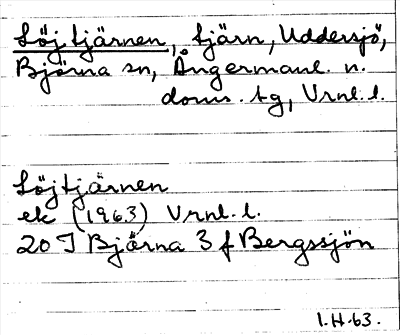 Löjtjärnen, tjärn, Uddersjö,
Björna sn, Ångermanl. n.
doms. tg, Vrnl. l.
Löjtjärnen
ek (1963) Vrnl. l.
20 I Björna 3 f Bergssjön
1.H.63.